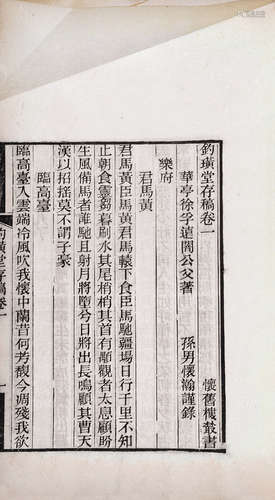 釣璜堂存稿卷一
懷舊樓叢書
華亭徐孚遠闇公父著
孫男懷瀚謹錄
樂府
君馬黃
君馬黃臣馬黃君馬轅下食臣馬馳疆場日行千里不知
止朝食靈芻暮刷水其尾梢梢其首有顒觀者太息顧盼
生風備馬者誰馳且射月將墮兮日將出長鳴顧其曹天
漢以招搖莫不謂子豪
臨高臺
臨高臺入雲端冷風吹我懷中蘭昔何芳馥今凋殘我欲
釣璜堂存稿卷一
一